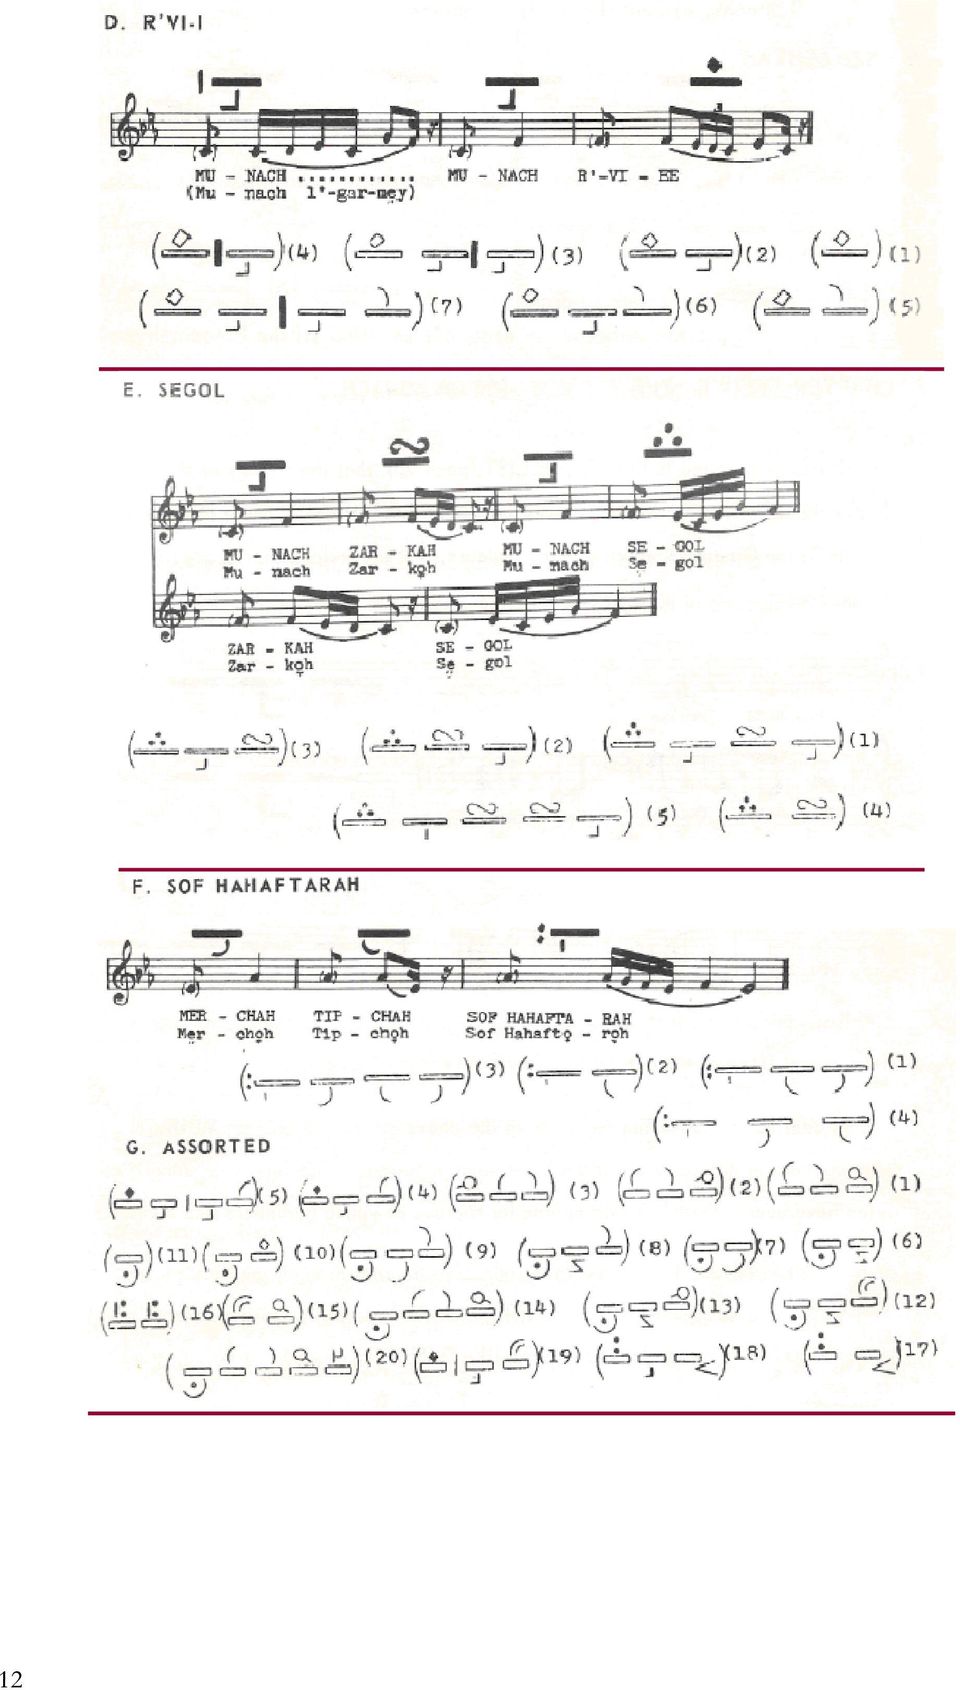 D. R'VI-I
MU - NACH ............ MU - NACH R'-VI - EE
(Mu - nach l'-gar-mey)
(4) (3) (2) (1)
(7) (6) (5)
E. SEGOL
MU - NACH ZAR - KAH MU - NACH SE - GOL
Mu - nach Zar - kọh Mu - nach Sẹ - gol
ZAR - KAH SE - GOL
Zar - kọh Sẹ - gol
(3) (2) (1)
(5) (4)
F. SOF HAHAFTARAH
MER - CHAH TIP - CHAH SOF HAHAFTA - RAH
Mẹr - chọh Tip - chọh Sof Hahaftọ - rọh
(3) (2) (1)
(4)
G. ASSORTED
(5) (4) (3) (2) (1)
(11) (10) (9) (8) (7) (6)
(16) (15) (14) (13) (12)
(20) (19) (18) (17)
12